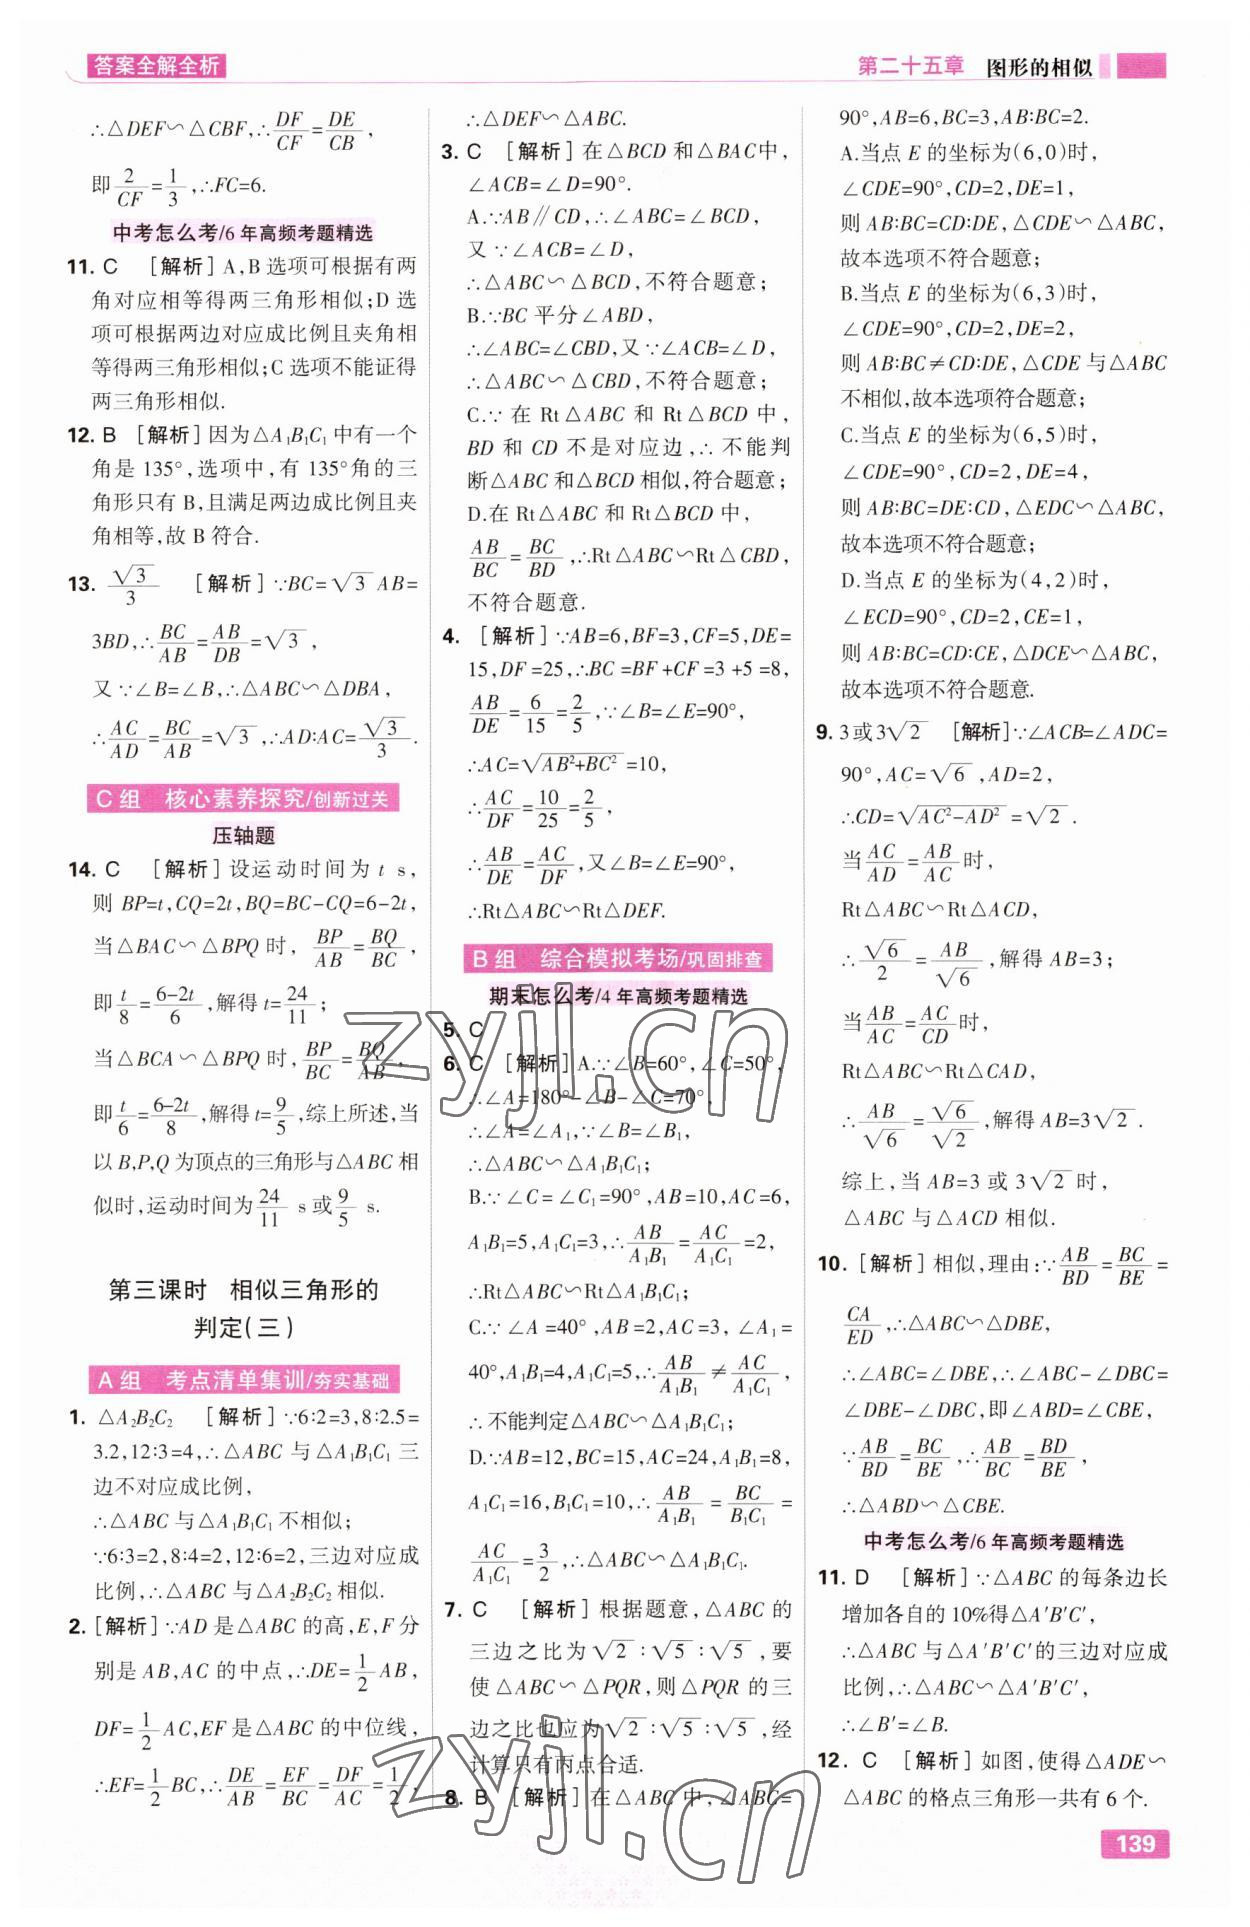 答案全解全析
第二十五章 图形的相似
∴△DEF∽△CBF,∴DF/CF=DE/CB,
即2/CF=1/3,∴FC=6.
中考怎么考/6年高频考题精选
11. C [解析]A,B选项可根据有两
角对应相等得两三角形相似;D选
项可根据两边对应成比例且夹角相
等得两三角形相似;C选项不能证得
两三角形相似.
12. B [解析]因为△A₁B₁C₁中有一个
角是135°,选项中,有135°角的三
角形只有B,且满足两边成比例且夹
角相等,故B符合.
13. √3/3 [解析]∵BC=√3AB=
3BD,∴BC/AB=AB/DB=√3,
又∵∠B=∠B,∴△ABC∽△DBA,
∴AC/AD=BC/AB=√3,∴AD∶AC=√3/3.
C组 核心素养探究/创新过关
压轴题
14. C [解析]设运动时间为t s,
则BP=t,CQ=2t,BQ=BC-CQ=6-2t,
当△BAC∽△BPQ时,BP/AB=BQ/BC,
即t/8=(6-2t)/6,解得t=24/11;
当△BCA∽△BPQ时,BP/BC=BQ/AB,
即t/6=(6-2t)/8,解得t=9/5,综上所述,当
以B,P,Q为顶点的三角形与△ABC相
似时,运动时间为24/11 s或9/5 s.
第三课时 相似三角形的
判定(三)
A组 考点清单集训/夯实基础
1. △A₂B₂C₂ [解析]∵6∶2=3,8∶2.5=
3.2,12∶3=4,∴△ABC与△A₁B₁C₁三
边不对应成比例,
∴△ABC与△A₁B₁C₁不相似;
∵6∶3=2,8∶4=2,12∶6=2,三边对应成
比例,∴△ABC与△A₂B₂C₂相似.
2. [解析]∵AD是△ABC的高,E,F分
别是AB,AC的中点,∴DE=1/2AB,
DF=1/2AC,EF是△ABC的中位线,
∴EF=1/2BC,∴DE/AB=EF/BC=DF/AC=1/2,
∴△DEF∽△ABC.
3. C [解析]在△BCD和△BAC中,
∠ACB=∠D=90°.
A.∵AB∥CD,∴∠ABC=∠BCD,
又∵∠ACB=∠D,
∴△ABC∽△BCD,不符合题意;
B.∵BC平分∠ABD,
∴∠ABC=∠CBD,又∵∠ACB=∠D,
∴△ABC∽△CBD,不符合题意;
C.∵在Rt△ABC和Rt△BCD中,
BD和CD不是对应边,∴不能判
断△ABC和△BCD相似,符合题意;
D.在Rt△ABC和Rt△BCD中,
AB/BC=BC/BD,∴Rt△ABC∽Rt△CBD,
不符合题意.
4. [解析]∵AB=6,BF=3,CF=5,DE=
15,DF=25,∴BC=BF+CF=3+5=8,
AB/DE=6/15=2/5,∵∠B=∠E=90°,
∴AC=√(AB²+BC²)=10,
∴AC/DF=10/25=2/5,
∴AB/DE=AC/DF,又∠B=∠E=90°,
∴Rt△ABC∽Rt△DEF.
B组 综合模拟考场/巩固排查
期末怎么考/4年高频考题精选
5. C
6. C [解析]A.∵∠B=60°,∠C=50°,
∴∠A=180°-∠B-∠C=70°,
∴∠A=∠A₁,∵∠B=∠B₁,
∴△ABC∽△A₁B₁C₁;
B.∵∠C=∠C₁=90°,AB=10,AC=6,
A₁B₁=5,A₁C₁=3,∴AB/A₁B₁=AC/A₁C₁=2,
∴Rt△ABC∽Rt△A₁B₁C₁;
C.∵∠A=40°,AB=2,AC=3,∠A₁=
40°,A₁B₁=4,A₁C₁=5,∴AB/A₁B₁≠AC/A₁C₁,
∴不能判定△ABC∽△A₁B₁C₁;
D.∵AB=12,BC=15,AC=24,A₁B₁=8,
A₁C₁=16,B₁C₁=10,∴AB/A₁B₁=BC/B₁C₁=
AC/A₁C₁=3/2,∴△ABC∽△A₁B₁C₁.
7. C [解析]根据题意,△ABC的
三边之比为√2∶√5∶√5,要
使△ABC∽△PQR,则△PQR的三
边之比也应为√2∶√5∶√5,经
计算只有两点合适.
8. B [解析]在△ABC中,∠ABC=
90°,AB=6,BC=3,AB∶BC=2.
A.当点E的坐标为(6,0)时,
∠CDE=90°,CD=2,DE=1,
则AB∶BC=CD∶DE,△CDE∽△ABC,
故本选项不符合题意;
B.当点E的坐标为(6,3)时,
∠CDE=90°,CD=2,DE=2,
则AB∶BC≠CD∶DE,△CDE与△ABC
不相似,故本选项符合题意;
C.当点E的坐标为(6,5)时,
∠CDE=90°,CD=2,DE=4,
则AB∶BC=DE∶CD,△EDC∽△ABC,
故本选项不符合题意;
D.当点E的坐标为(4,2)时,
∠ECD=90°,CD=2,CE=1,
则AB∶BC=CD∶CE,△DCE∽△ABC,
故本选项不符合题意.
9. 3或3√2 [解析]∵∠ACB=∠ADC=
90°,AC=√6,AD=2,
∴CD=√(AC²-AD²)=√2.
当AC/AD=AB/AC时,
Rt△ABC∽Rt△ACD,
∴√6/2=AB/√6,解得AB=3;
当AB/AC=AC/CD时,
Rt△ABC∽Rt△CAD,
∴AB/√6=√6/√2,解得AB=3√2.
综上,当AB=3或3√2时,
△ABC与△ACD相似.
10. [解析]相似,理由:∵AB/BD=BC/BE=
CA/ED,∴△ABC∽△DBE,
∴∠ABC=∠DBE,∴∠ABC-∠DBC=
∠DBE-∠DBC,即∠ABD=∠CBE,
∵AB/BD=BC/BE,∴AB/BC=BD/BE,
∴△ABD∽△CBE.
中考怎么考/6年高频考题精选
11. D [解析]∵△ABC的每条边长
增加各自的10%得△A′B′C′,
∴△ABC与△A′B′C′的三边对应成
比例,∴△ABC∽△A′B′C′,
∴∠B′=∠B.
12. C [解析]如图,使得△ADE∽
△ABC的格点三角形一共有6个.
139
zyjl.cn
zyjl.cn